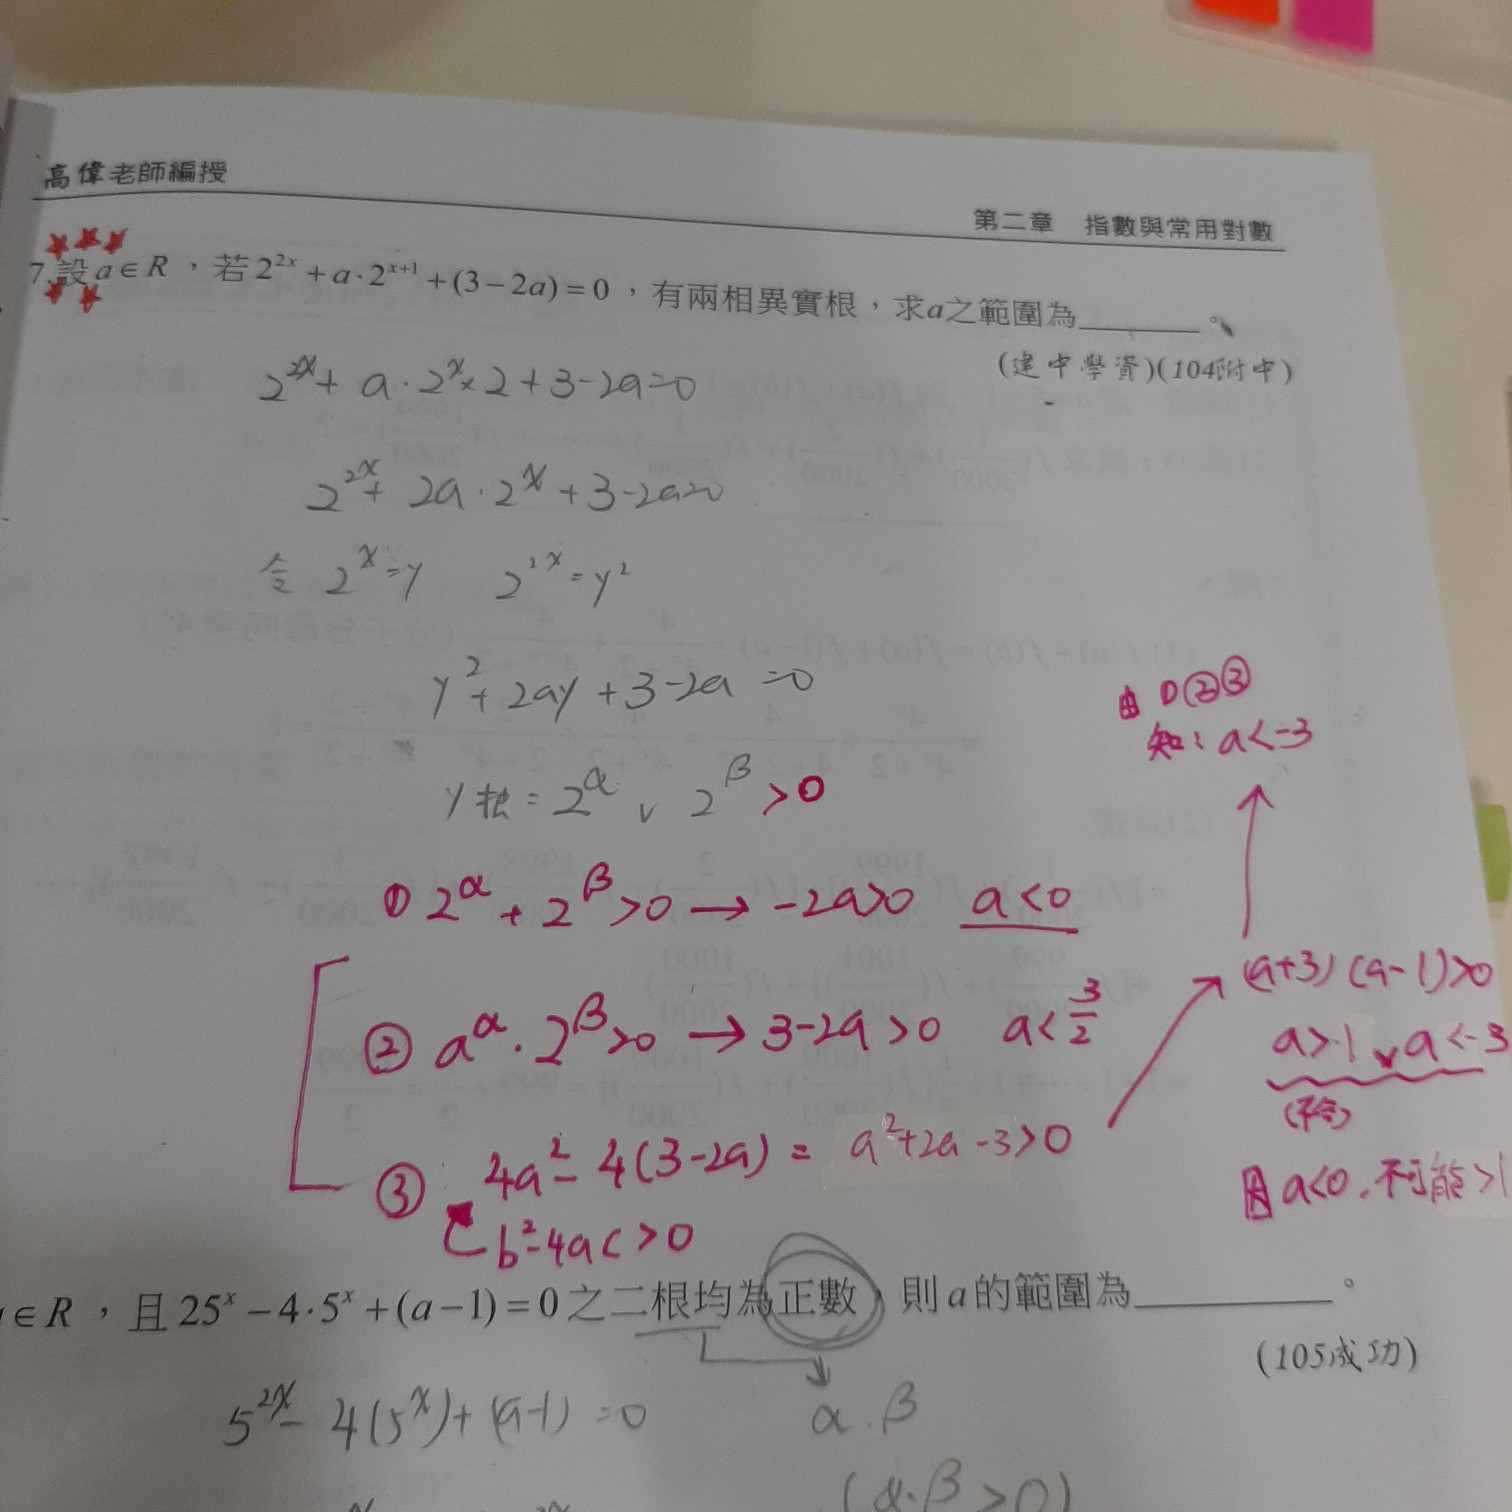 高偉老師編授
第二章 指數與常用對數
7.設a∈R，若2^{2x}+a·2^{x+1}+(3-2a)=0，有兩相異實根，求a之範圍為______。
(建中學資)(104附中)
2^{2x}+a·2^x×2+3-2a=0
2^{2x}+2a·2^x+3-2a=0
令 2^x=y 2^{2x}=y^2
y^2+2ay+3-2a=0
y根=2^α ∨ 2^β>0
①2^α+2^β>0→-2a>0 a<0
②a^α·2^β>0→3-2a>0 a<3/2
③ 4a^2-4(3-2a)=a^2+2a-3>0
b^2-4ac>0
(a+3)(a-1)>0
a>1∨a<-3
(不合)
因a<0,不可能>1
由①②③
知:a<-3
∈R，且25^x-4·5^x+(a-1)=0之二根均為正數，則a的範圍為__________。
(105成功)
5^{2x}-4(5^x)+(a-1)=0
α.β
(α.β>0)